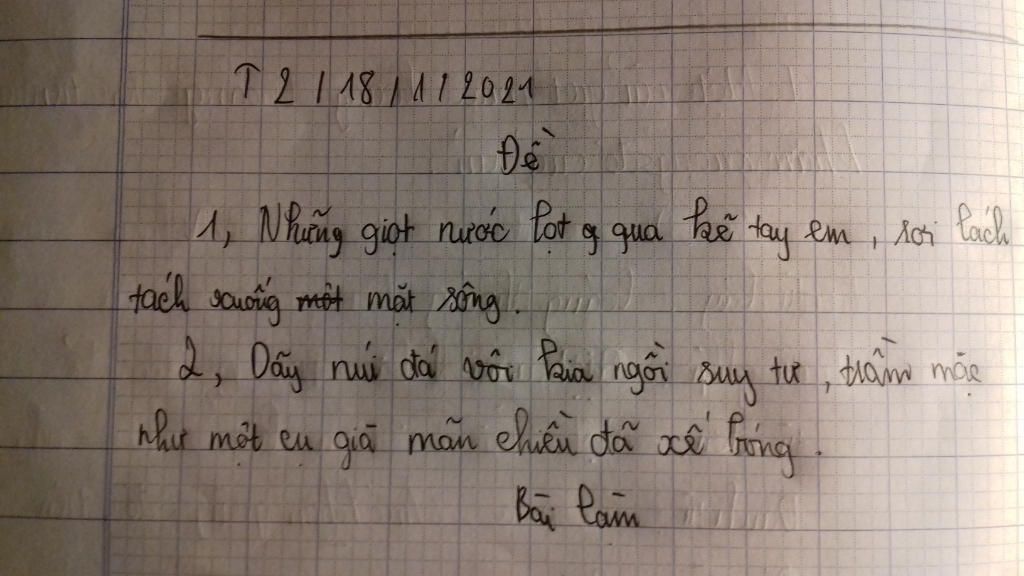 T2/18/1/2021
Đề
1, Những giọt nước lọt q qua kẽ tay em, rơi lách
tách xuống một mặt sông.
2, Dãy núi đá vôi kia ngồi suy tư, trầm mặc
như một cụ già mãn chiều đã xế bóng.
Bài làm